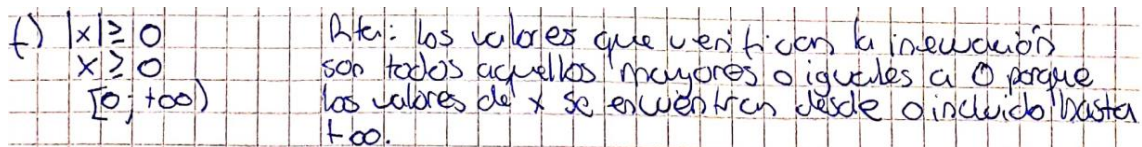 f) |x| ≥ 0 Rta: Los valores que verifican la inecuación
x ≥ 0 son todos aquellos mayores o iguales a 0 porque
[0; +∞) los valores de x se encuentran desde 0 incluido hasta
+∞.